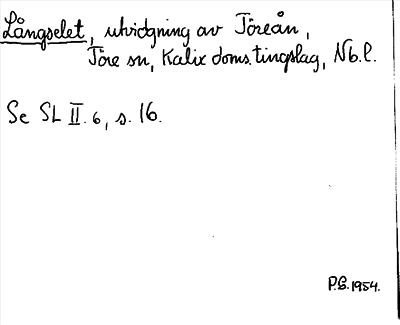 Långselet, utvidgning av Töreån,
Töre sn, Kalix doms. tingslag, Nb.l.
Se SL II.6, s. 16.
P.G. 1954.